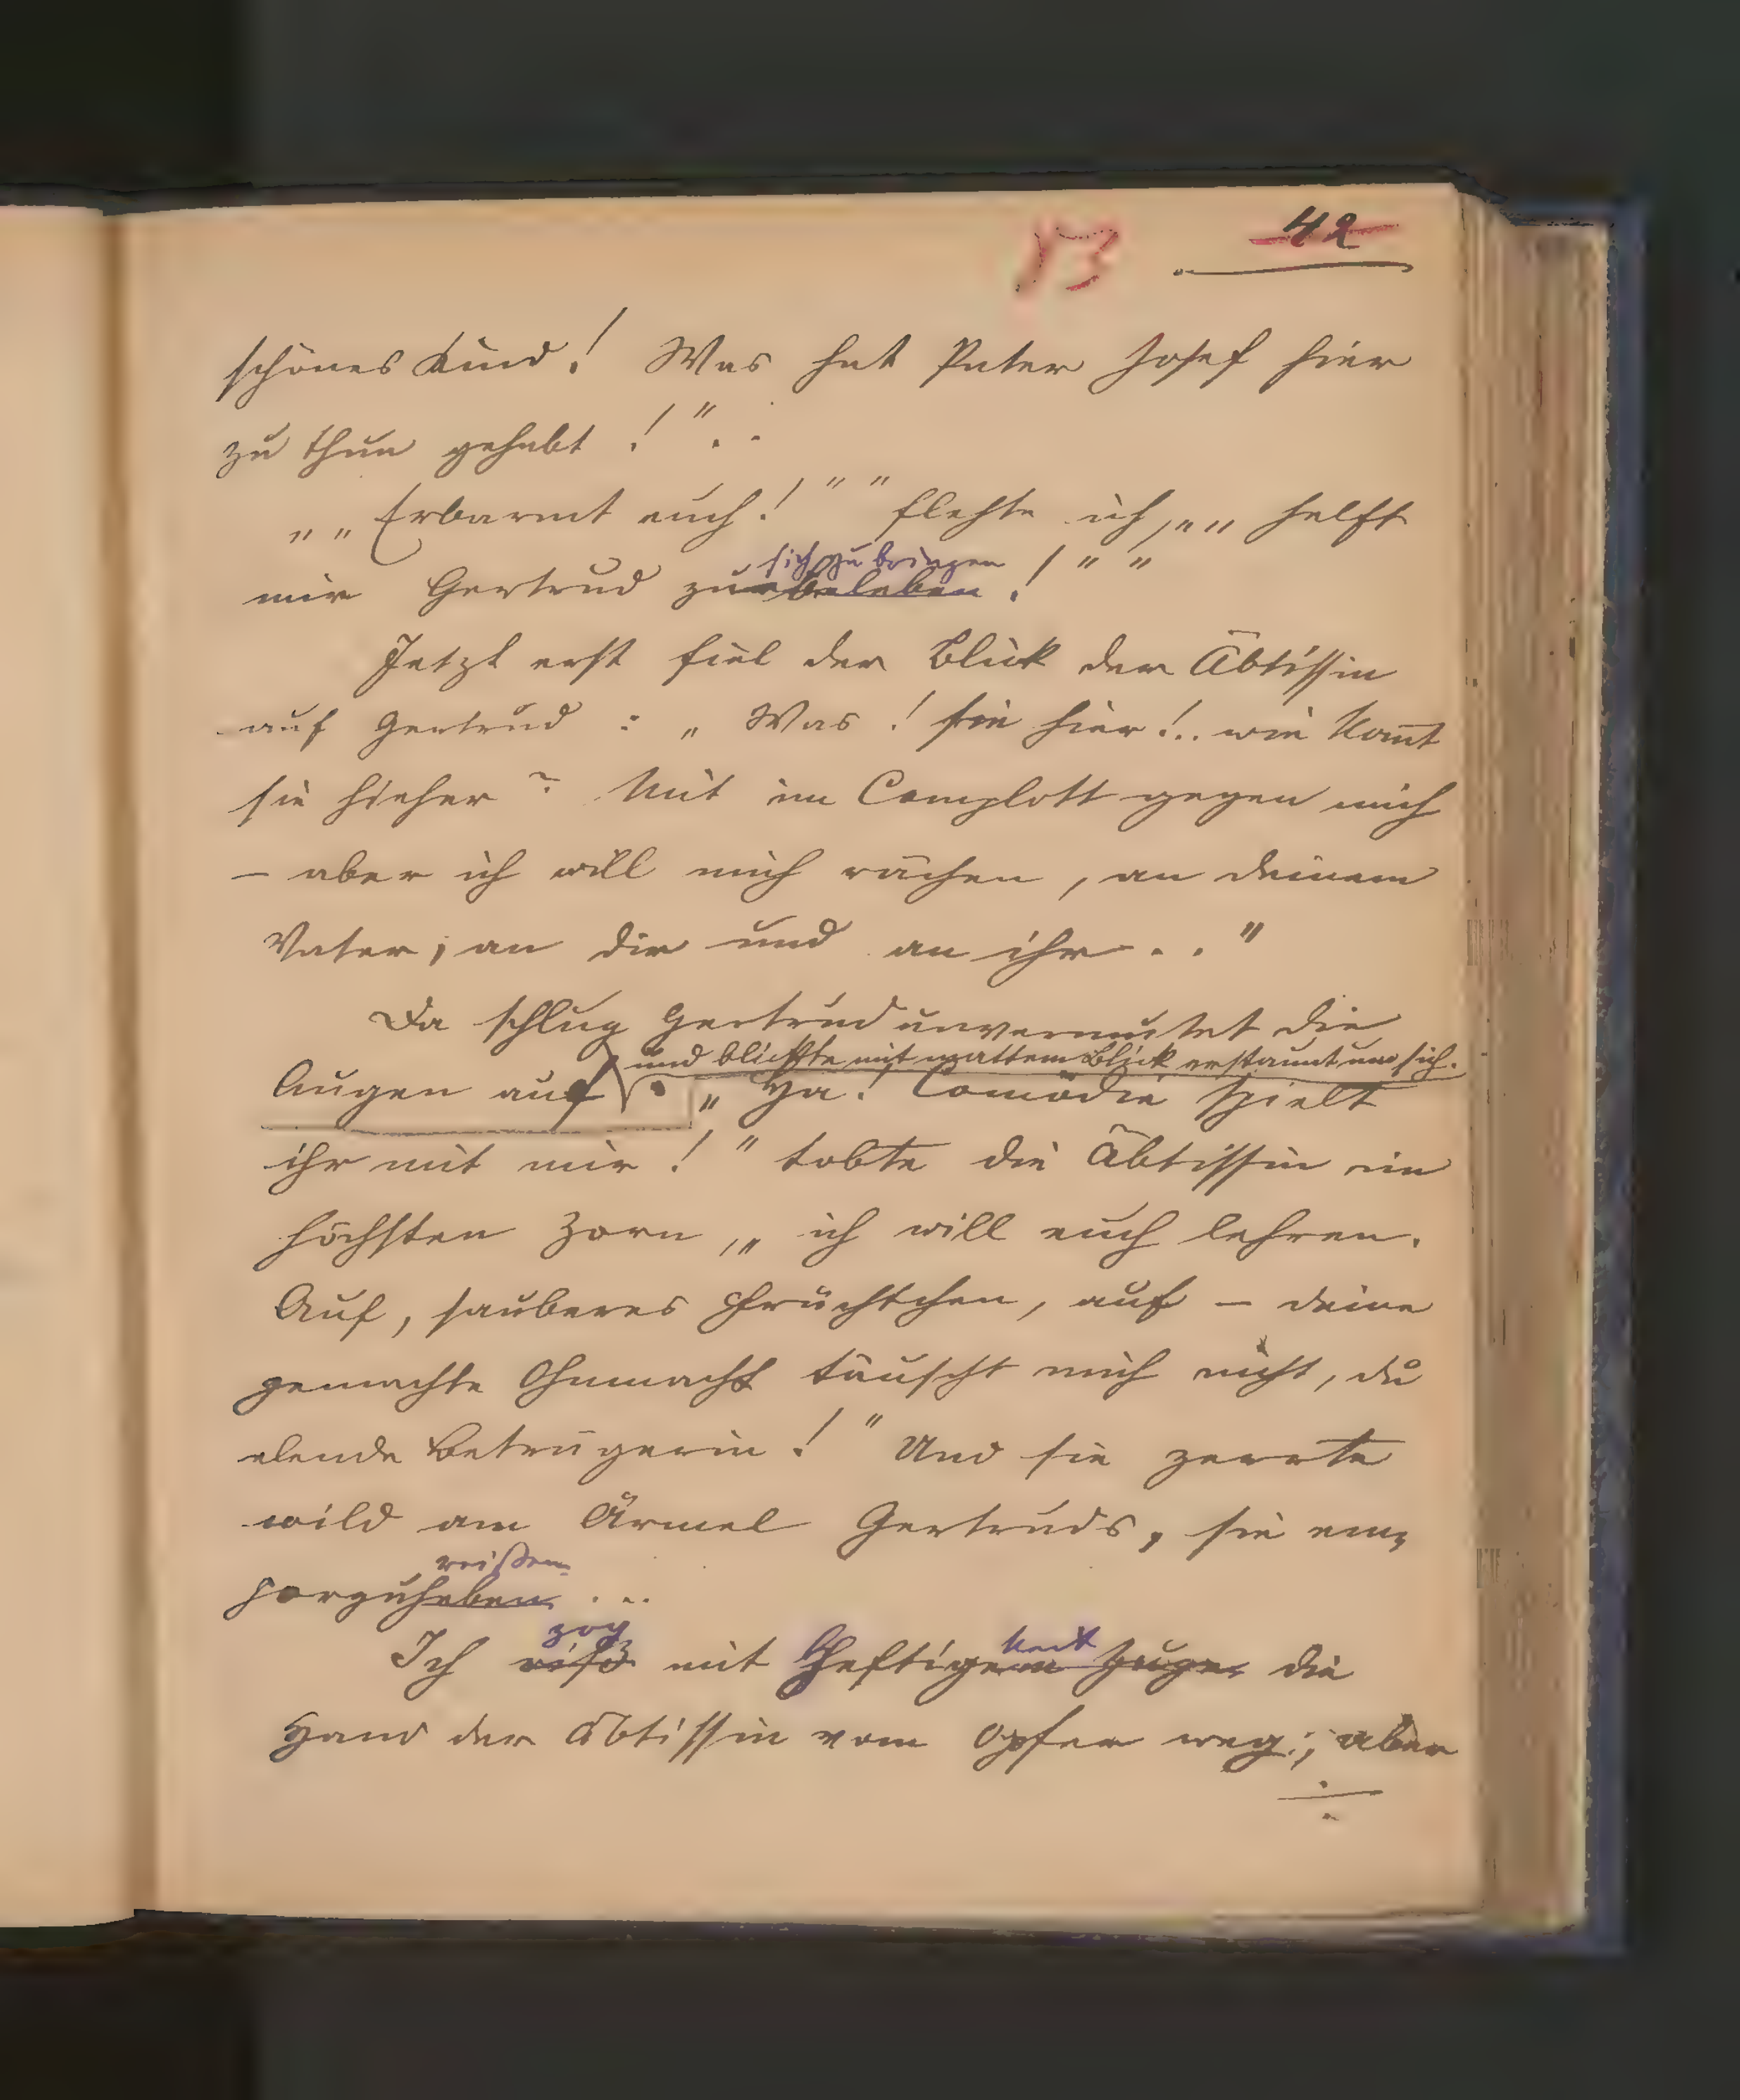 53 42
schönes Kind! Was hat Pater Josef hier
zu thun gehabt!"..
„„Erbarmt euch!"" flehte ich, „„helft
sich zu bringen
mir Gertrud zu beleben!""
Jetzt erst fiel der Blick der Äbtissin
auf Gertrud: „Was! sie hier!.. wie kom̅t
sie hieher? Mit im Complott gegen mich
– aber ich will mich rächen, an deinem
Vater, an dir und an ihr..."
Da schlug Gertrud unvermutet die
und blickte mit mattem Blick erstaunt um sich.
Augen auf. „Ha! Comödie spielt
ihr mit mir!" tobte die Äbtissin im
höchsten Zorn, „ich will euch lehren.
Auf, sauberes Früchtchen, auf – deine
gemachte Ohnmacht täuscht mich nicht, du
elende Betrügerin!" Und sie zerrte
wild am Ärmel Gertruds, sie em=
reißen
porzuheben ...
zog keit
Ich riß mit heftigem Zuge die
Hand der Äbtissin vom Opfer weg; aber